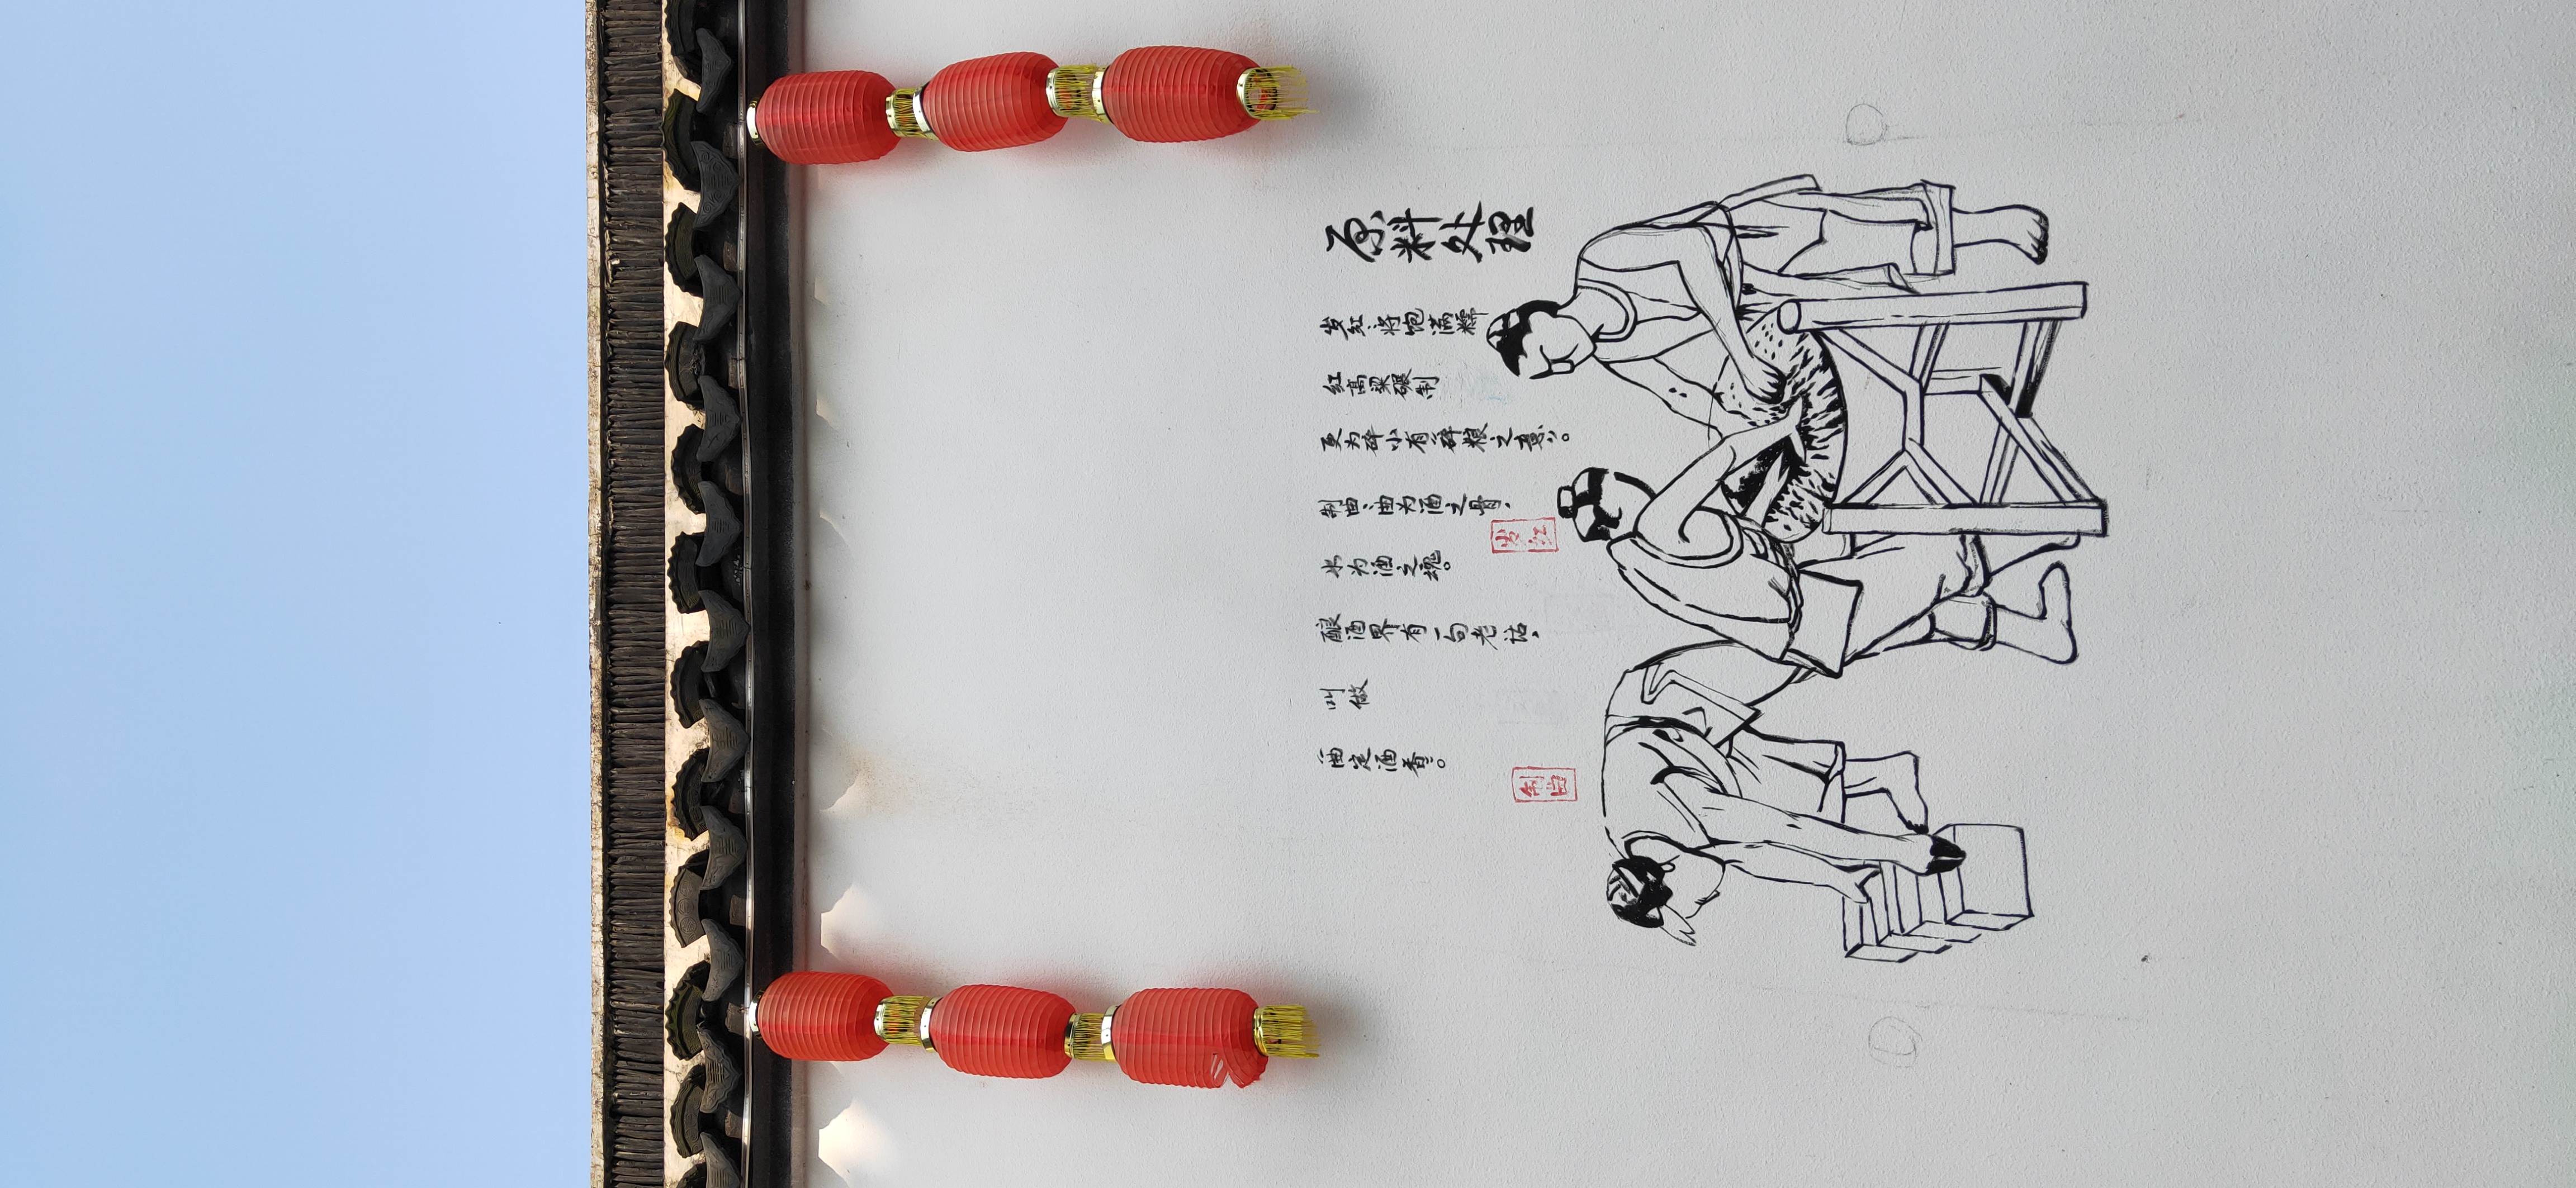 原料处理
岁红、将饱满糯
红高粱碾制
更为碎小有碎粮之意。
制曲、曲为酒之骨，
岁红
水为酒之魂。
酿酒界有一句老话，
叫做
一曲定酒香。
制曲